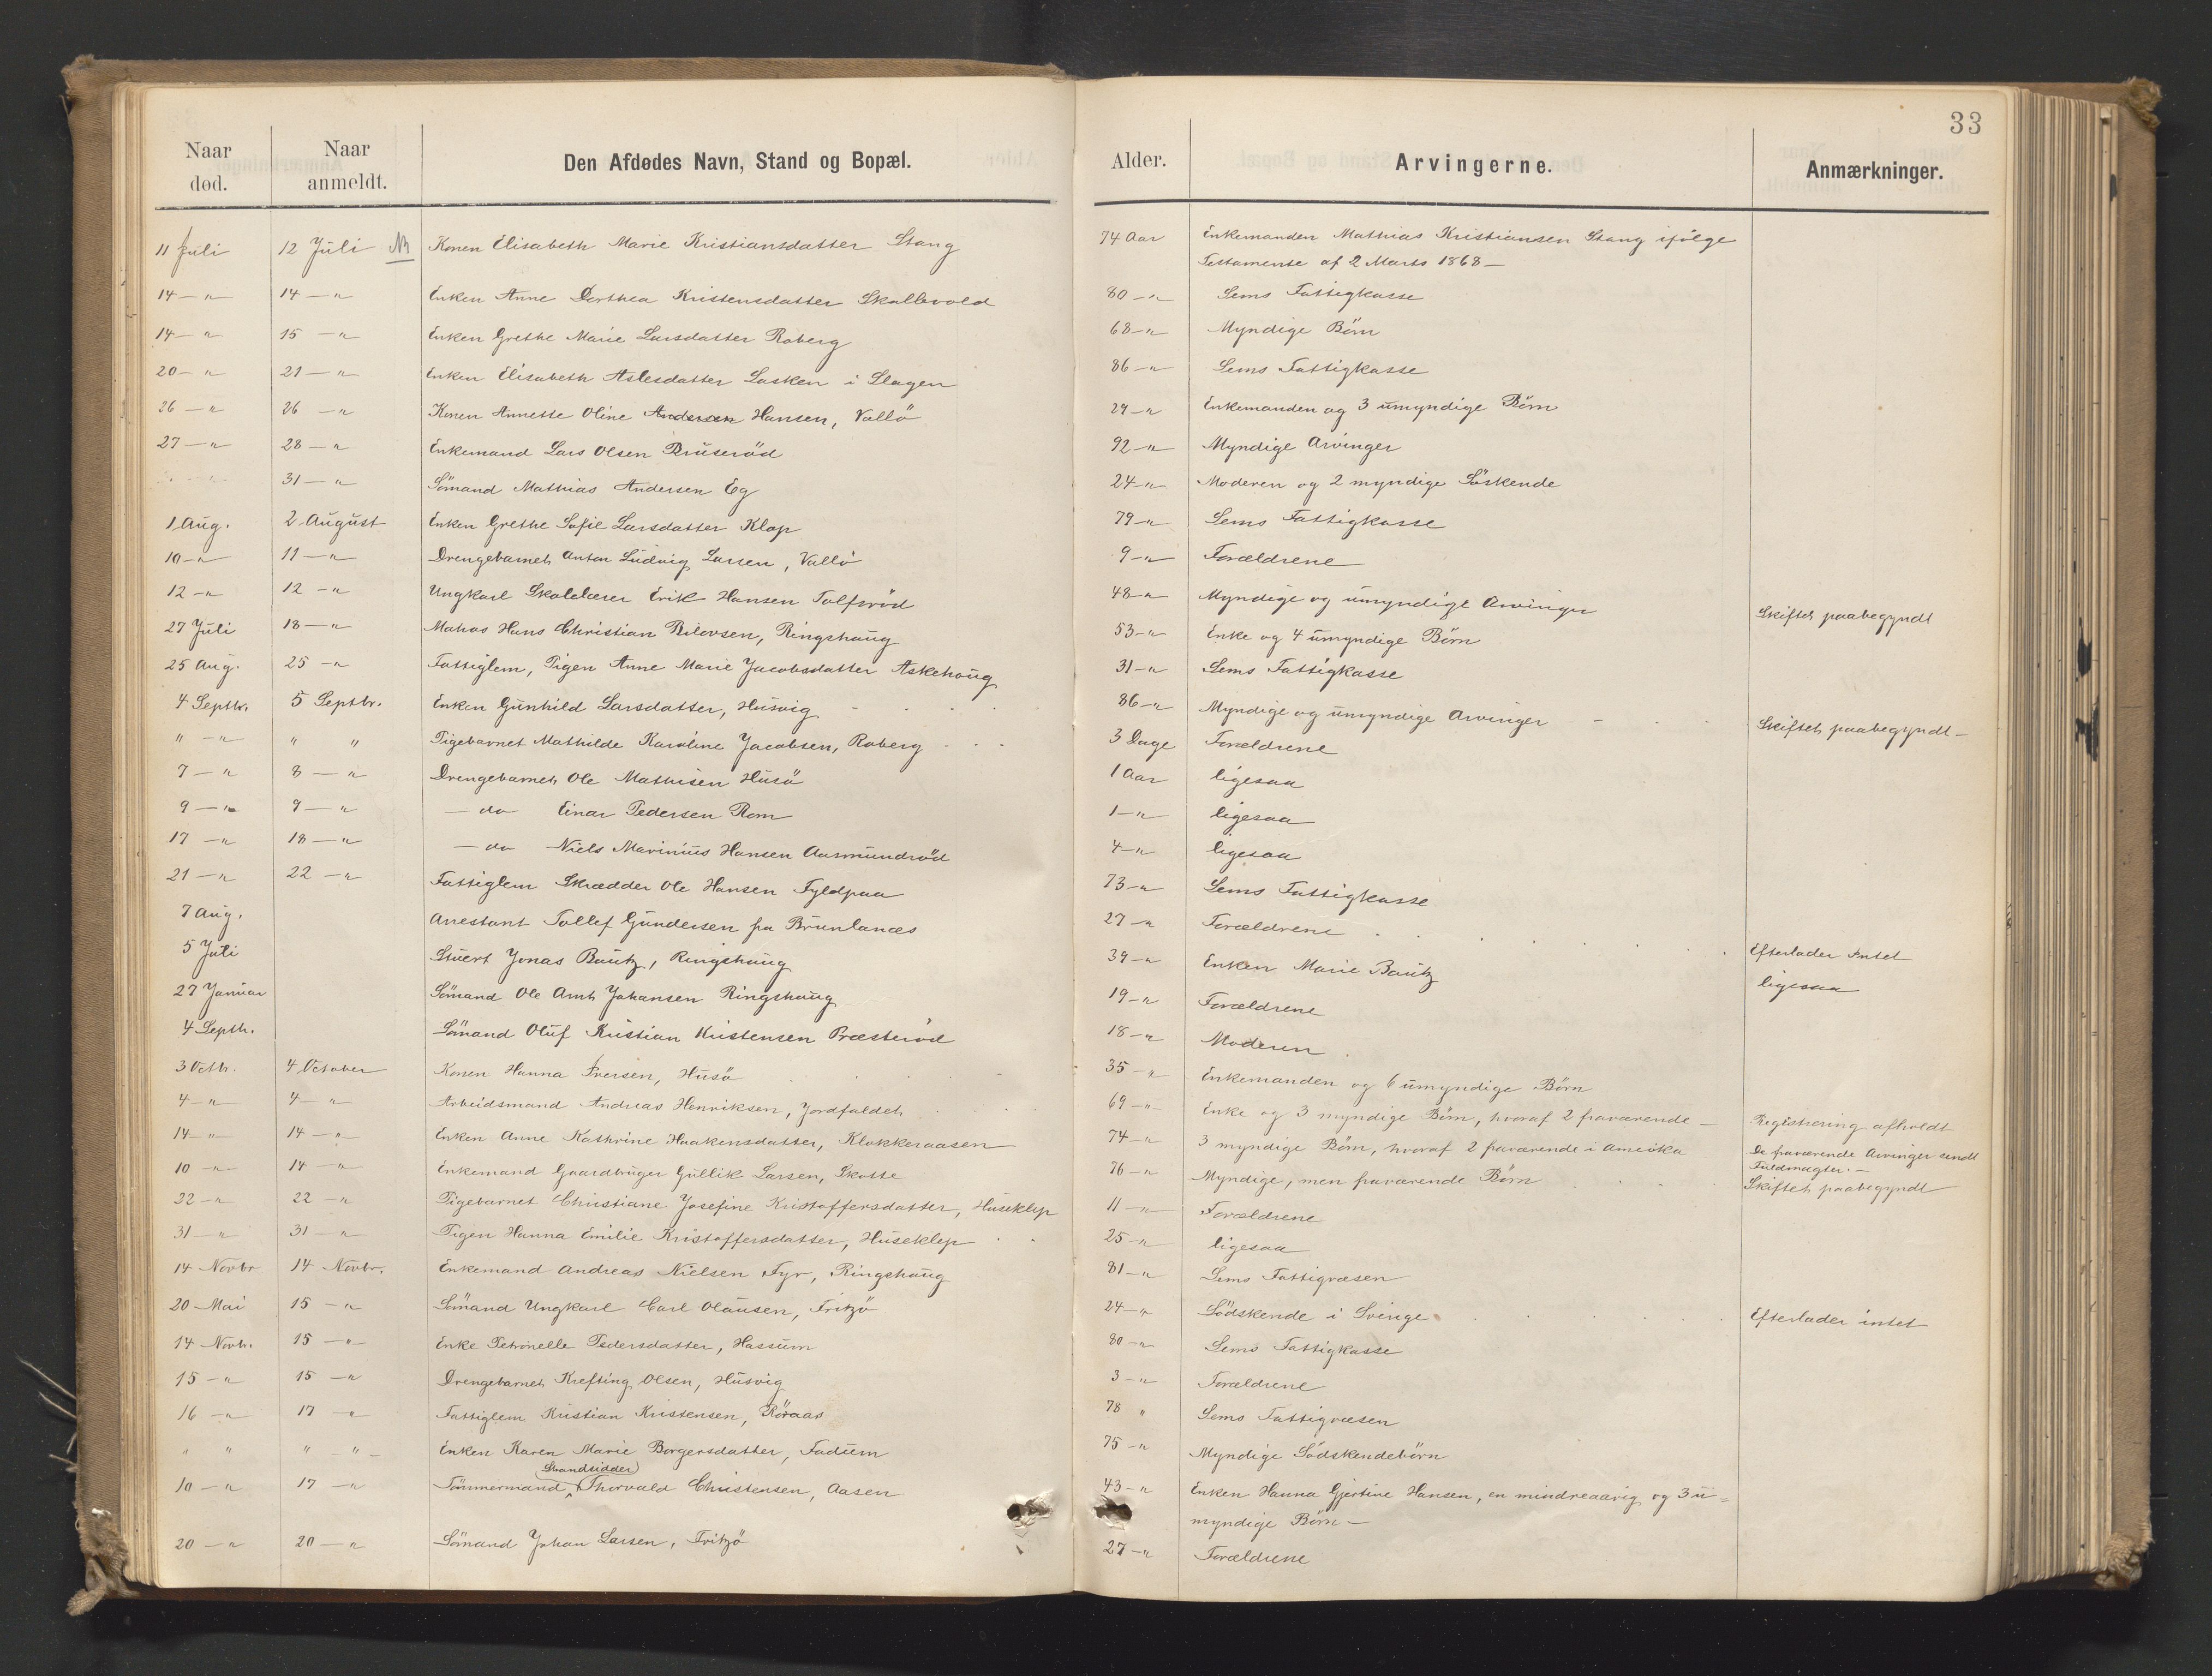 33
Naar død. Naar anmeldt. Den Afdødes Navn, Stand og Bopæl. Alder. Arvingerne. Anmærkninger.
11 Juli 12 Juli Konen Elisabeth Marie Kristiansdatter Stang 74 Aar Enkemanden Mathias Kristiansen Stang ifölge
Testamente af 2 Marts 1868 —
14 — " 14 — " Enken Anne Dorthea Kristensdatter Skallevold 80 — " Sems Fattigkasse
14 — " 15 — " Enken Grethe Marie Larsdatter Roberg 68 — " Myndige Börn
20 — " 21 — " Enken Elisabeth Aslesdatter Lasken i Slagen 86 — " Sems Fattigkasse
26 — " 26 — " Konen Annette Oline Andersen Hansen, Vallö 29 — " Enkemanden og 3 umyndige Börn
27 — " 28 — " Enkemand Lars Olsen Bruseröd 92 — " Myndige Arvinger
31 — " Sömand Mathias Andersen Eg 24 — " Moderen og 2 myndige Söskende
1 Aug. 2 August Enken Grethe Sofie Larsdatter Klop 79 — " Sems Fattigkasse
10 — " 11 — " Drengebarnet Anton Ludvig Larsen, Vallö 9 — " Forældrene
12 — " 12 — " Ungkarl Skolelærer Erik Hansen Tolfsröd 48 — " Myndige og umyndige Arvinger Skiftet paabegyndt
27 Juli 18 — " Matros Hans Christian Bilovsen, Ringshaug 53 — " Enke og 4 umyndige Börn
25 Aug. 25 — " Fattiglem, Pigen Anne Marie Jacobsdatter Askehoug 31 — " Sems Fattigkasse
4 Septbr. 5 Septbr. Enken Gunhild Larsdatter, Husvig 86 — " Myndige og umyndige Arvinger — Skiftet paabegyndt —
" — " " " Pigebarnet Mathilde Karoline Jacobsen, Roberg 3 Dage Forældrene
7 — " 8 — " Drengebarnet Ole Mathisen Husö 1 Aar ligesaa
9 — " 9 — " — do Einar Pedersen Rom 1 — " ligesaa
17 — " 18 — " — do Niels Marinius Hansen Aasmundröd 4 — " ligesaa
21 — " 22 — " Fattiglem Skrædder Ole Hansen Fyldpaa 73 — " Sems Fattigkasse
7 Aug. Arrestant Tollef Gundersen fra Brunlanæs 27 — " Forældrene
5 Juli Stuert Jonas Bautz, Ringshaug 39 — " Enken Marie Bautz Efterlader Intet
27 Januar Sömand Ole Arnt Johansen Ringshaug 19 — " Forældrene ligesaa
4 Septb. Sömand Oluf Kristian Kristensen Præsteröd 18 — " Moderen
3 Octb. 4 October Konen Hanna Iversen, Husö 35 — " Enkemanden og 6 umyndige Börn
4 — " 4 — " Arbeidsmand Andreas Henriksen, Jordfaldet 69 — " Enke og 3 myndige Börn, hvoraf 2 fraværende — Registrering afholdt
14 — " 14 — " Enken Anne Kathrine Haakensdatter, Klokkeraasen 74 — " 3 myndige Börn, hvoraf 2 fraværende i Amerika De fraværende Arvinger sendt
Fuldmagter. —
10 — " 14 — " Enkemand Gaardbruger Gullik Larsen, Skotte 76 — " Myndige, men fraværende Börn Skiftet paabegyndt
22 — " 22 — " Pigebarnet Christiane Josefine Kristoffersdatter, Huseklep 11 — " Forældrene
31 — " 31 — " Pigen Hanna Emilie Kristoffersdatter, Huseklep 25 — " ligesaa
14 Novbr 14 Novbr. Enkemand Andreas Nielsen Fyr, Ringshaug 81 — " Sems Fattigvæsen
20 Mai 15 — " Sömand Ungkarl Carl Olausen, Fritzö 24 — " Södskende i Sverige Efterlader intet
14 Novb. 15 — " Enke Petronelle Pedersdatter, Hassum 80 — " Sems Fattigkasse
15 — " 15 — " Drengebarnet Krefting Olsen, Husvig 3 — " Forældrene
16 — " 17 — " Fattiglem Kristian Kristensen, Röraas 78 " Sems Fattigvæsen
" " " — " — Enken Karen Marie Borgersdatter, Fadum 75 — " Myndige Södskendebörn
Strandsidder
10 — " 17 — " Tömmermand, Thorvald Christensen, Aasen 43 — " Enken Hanna Gjertine Hansen, en mindreaarig og 3 u=
myndige Börn —
20 — " 20 — " Sömand Johan Larsen, Fritzö 27 — " Forældrene